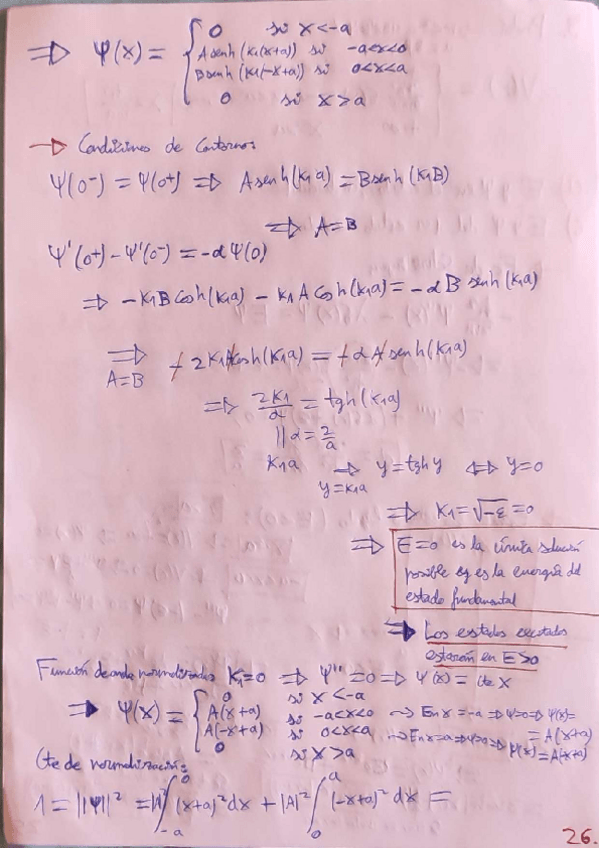 ⇒ Ψ(x) = { 0 si x < -a
A senh(K₁(x+a)) si -a<x<0
B senh(K₁(-x+a)) si 0<x<a
0 si x > a
→ Condiciones de Contorno:
Ψ(0⁻) = Ψ(0⁺) ⇒ A senh(K₁a) = B senh(K₁B)
⇒ A=B
Ψ'(0⁺) - Ψ'(0⁻) = -αΨ(0)
⇒ -K₁B Cosh(K₁a) - K₁A Cosh(K₁a) = -αB senh(K₁a)
⇒ A=B - 2K₁A Cosh(K₁a) = -αA senh(K₁a)
⇒ 2K₁/α = tgh(K₁a)
|| α = 2/a
K₁a → y=K₁a y = tgh y ⇔ y=0
⇒ K₁ = √-ε = 0
⇒ E=0 es la única solución
posible y es la energía del
estado fundamental
⇒ Los estados excitados
estarán en E>0
Función de onda normalizada K₁=0 ⇒ Ψ''=0 ⇒ Ψ(x) = cte x
⇒ Ψ(x) = { 0 si x < -a
A(x+a) si -a<x<0 ⤳ En x = -a ⇒ Ψ=0 ⇒ Ψ(x)= = A(x+a)
A(-x+a) si 0<x<a ⤳ En x=a ⇒ Ψ=0 ⇒ Ψ(x) = A(x+a)
0 si x > a
Cte de normalización:
1 = ||Ψ||² = |A|² ∫₋ₐ⁰ (x+a)² dx + |A|² ∫₀ᵃ (-x+a)² dx =
26.